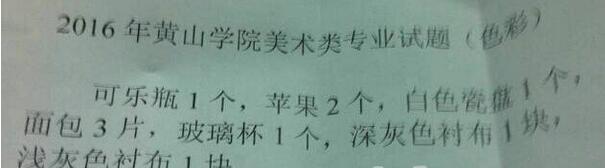 2016年黄山学院美术类专业试题（色彩）
可乐瓶1个，苹果2个，白色瓷盘1个，
面包3片，玻璃杯1个，深灰色衬布1块，
浅灰色衬布1块